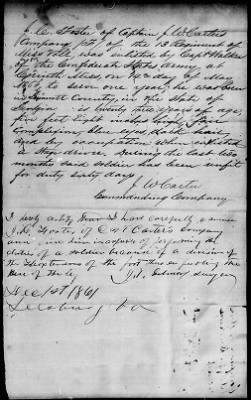 J. A. Foster of Captain J W Carters
Company (F) of the 13 Regiment of
Miss Vols. was enlisted by Capt
of the Confederate States Army, at
Corinth Miss, on day of May
1861 to serve one year, he was born
in County, in the State of
is twenty five years of age
five feet Eight inches high, Fair
Complexion, blue eyes, dark hair,
and by occupation when enlisted
a driver. During the last two
months said soldier has been unfit
for duty sixty days.
J W Carter
Commanding Company
I hereby certify that I have carefully examined
J. A. Foster of Capt Carter's Company
and find him incapable of performing the
duties of a soldier because of a division of
the of the foot thus
use of the leg
Surgeon
Dec 1st 1861
Leesburg Va